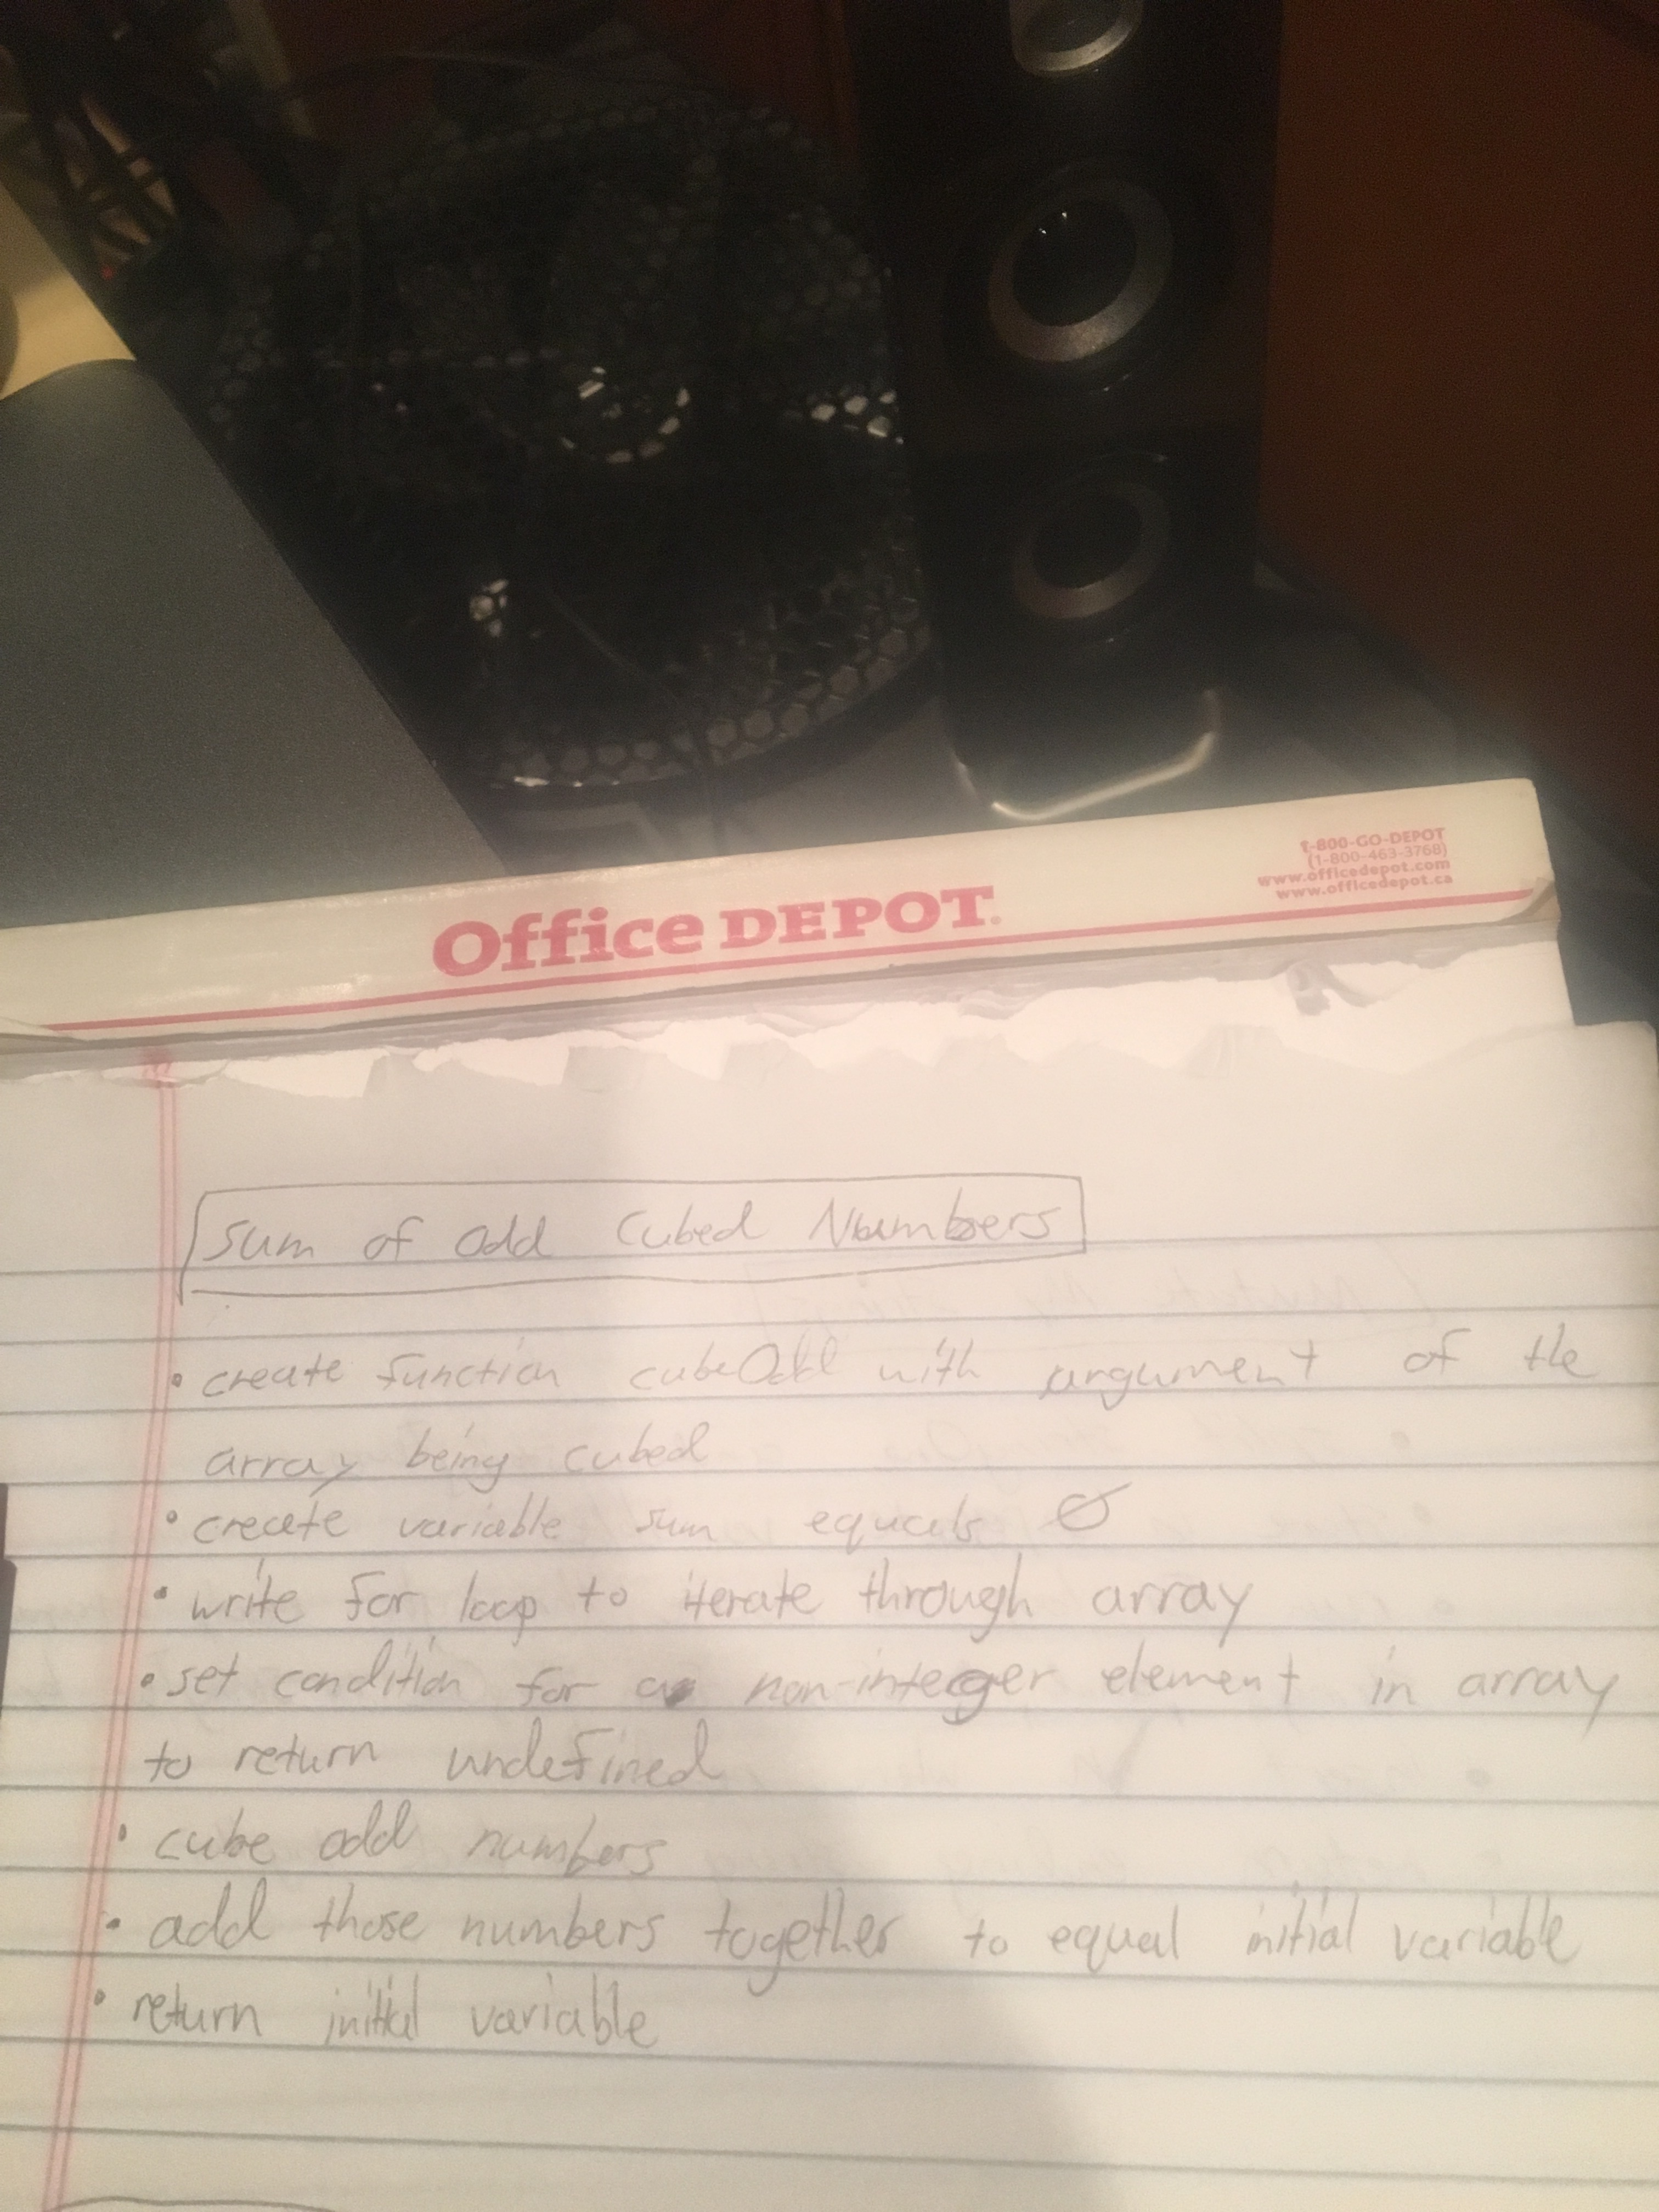 1-800-GO-DEPOT
(1-800-463-3768)
www.officedepot.com
www.officedepot.ca
Office DEPOT.
Sum of Odd Cubed Numbers
• create function cubeOdd with argument of the
array being cubed
• create variable sum equals 0
• write for loop to iterate through array
• set condition for a non-integer element in array
to return undefined
• cube odd numbers
• add those numbers together to equal initial variable
• return initial variable